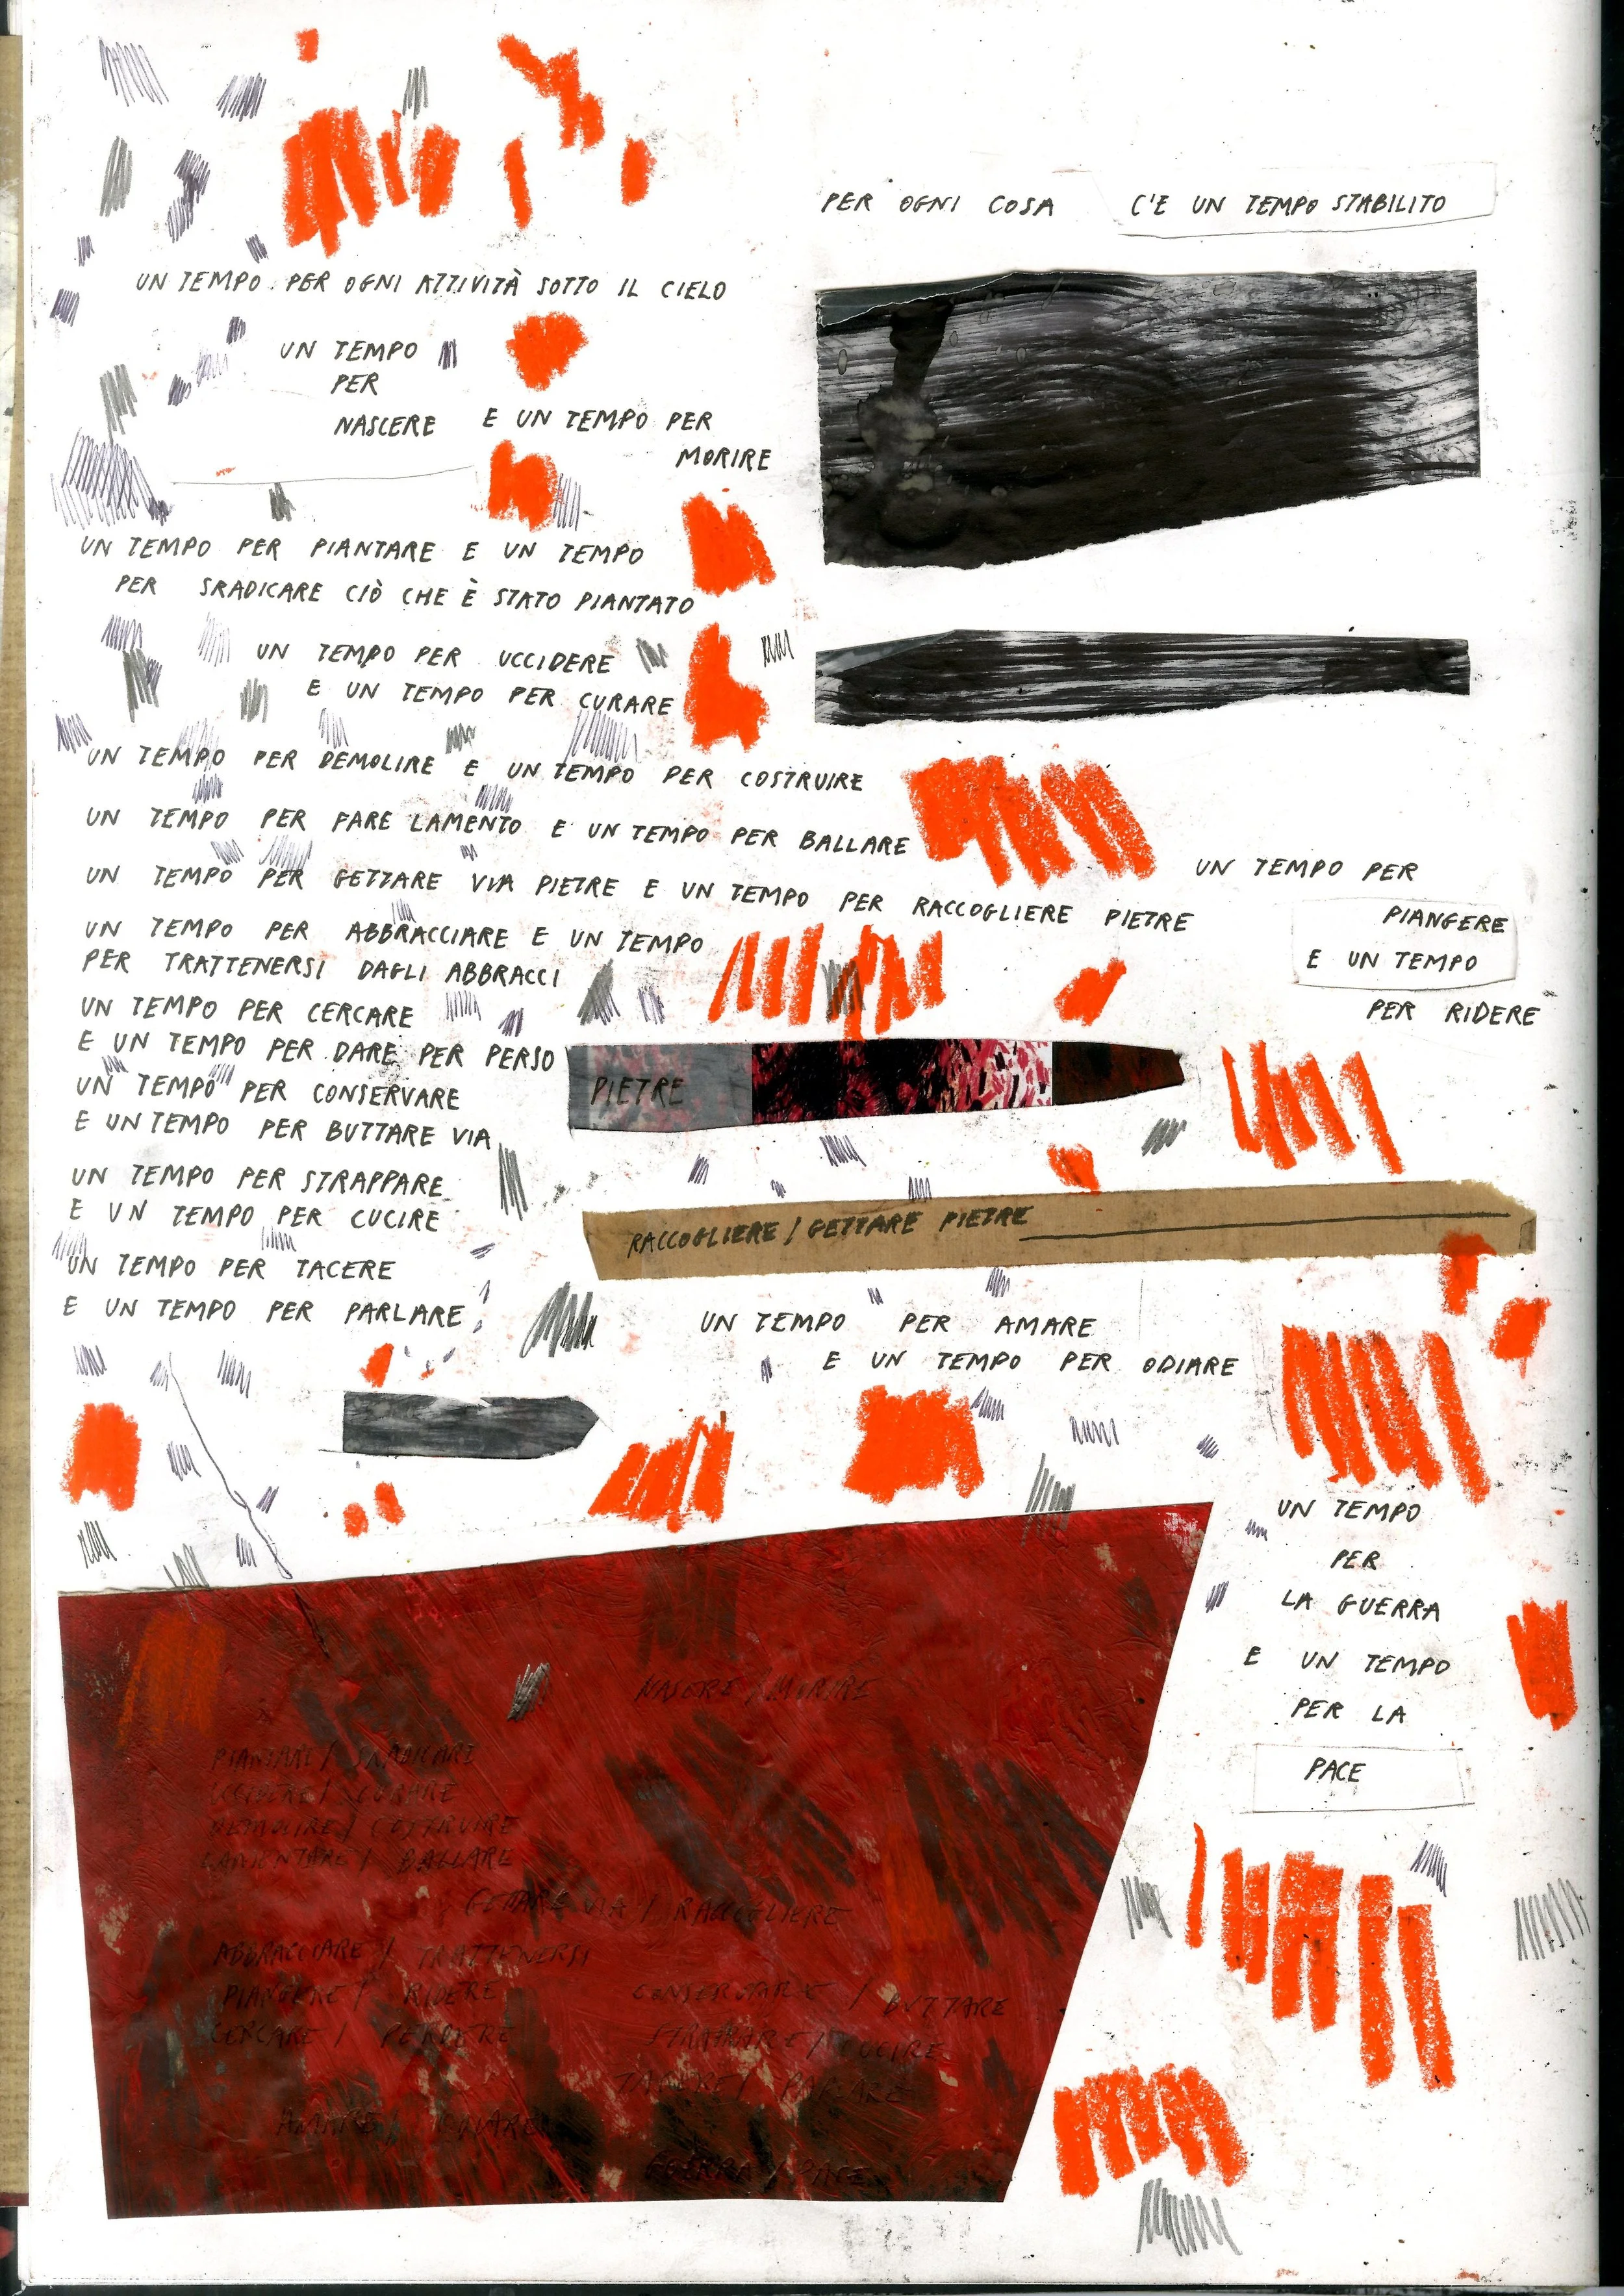 PER OGNI COSA C'E UN TEMPO STABILITO
UN TEMPO PER OGNI ATTIVITÀ SOTTO IL CIELO
UN TEMPO
PER
NASCERE E UN TEMPO PER
MORIRE
UN TEMPO PER PIANTARE E UN TEMPO
PER SRADICARE CIÒ CHE È STATO PIANTATO
UN TEMPO PER UCCIDERE
E UN TEMPO PER CURARE
UN TEMPO PER DEMOLIRE E UN TEMPO PER COSTRUIRE
UN TEMPO PER
PIANGERE
E UN TEMPO
PER RIDERE
UN TEMPO PER FARE LAMENTO E UN TEMPO PER BALLARE
UN TEMPO PER GETTARE VIA PIETRE E UN TEMPO PER RACCOGLIERE PIETRE
UN TEMPO PER ABBRACCIARE E UN TEMPO
PER TRATTENERSI DAGLI ABBRACCI
UN TEMPO PER CERCARE
E UN TEMPO PER DARE PER PERSO
UN TEMPO PER CONSERVARE
E UN TEMPO PER BUTTARE VIA
UN TEMPO PER STRAPPARE
E UN TEMPO PER CUCIRE
UN TEMPO PER TACERE
E UN TEMPO PER PARLARE
PIETRE
RACCOGLIERE / GETTARE PIETRE
UN TEMPO PER AMARE
E UN TEMPO PER ODIARE
UN TEMPO
PER
LA GUERRA
E UN TEMPO
PER LA
PACE
NASCERE / MORIRE
PIANTARE / SRADICARE
UCCIDERE / CURARE
DEMOLIRE / COSTRUIRE
LAMENTARE / BALLARE
GETTARE VIA / RACCOGLIERE
ABBRACCIARE / TRATTENERSI
PIANGERE / RIDERE
CERCARE / PERDERE
CONSERVARE / BUTTARE
STRAPPARE / CUCIRE
TACERE / PARLARE
AMARE / ODIARE
GUERRA / PACE